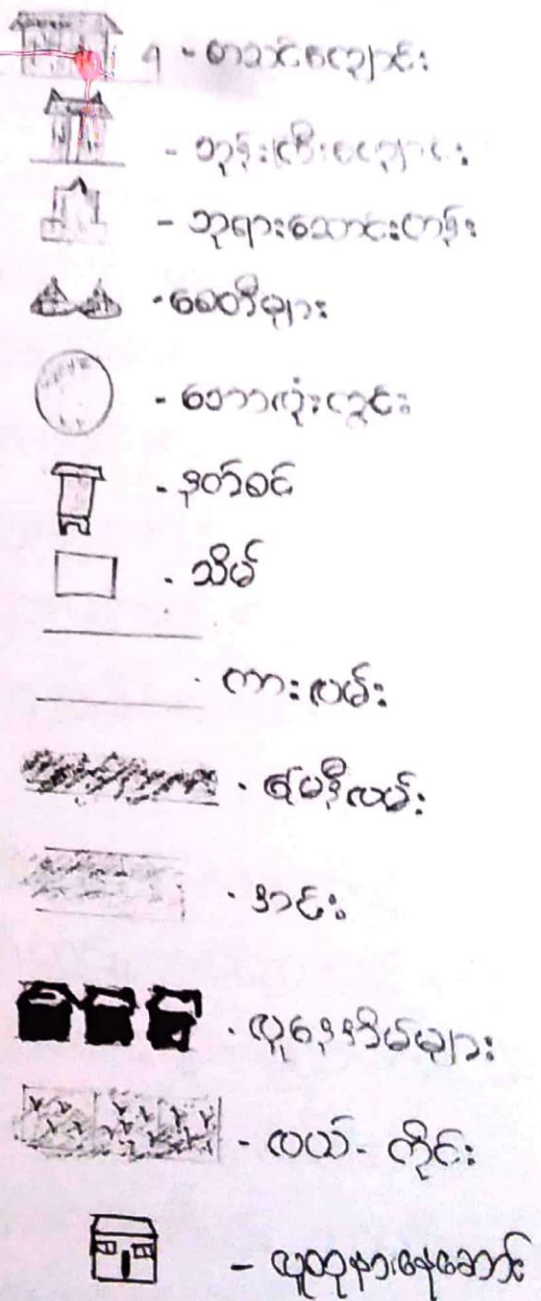 ၅ - စာသင်ကျောင်း
- ဘုန်းကြီးကျောင်း
- ဘုရားကျောင်းတန်း
- စေတီများ
- ဘောလုံးကွင်း
- နတ်စင်
- သိမ်
- ကားလမ်း
- မြေနီလမ်း
- အင်း
- လူနေအိမ်များ
- လယ် - ကိုင်း